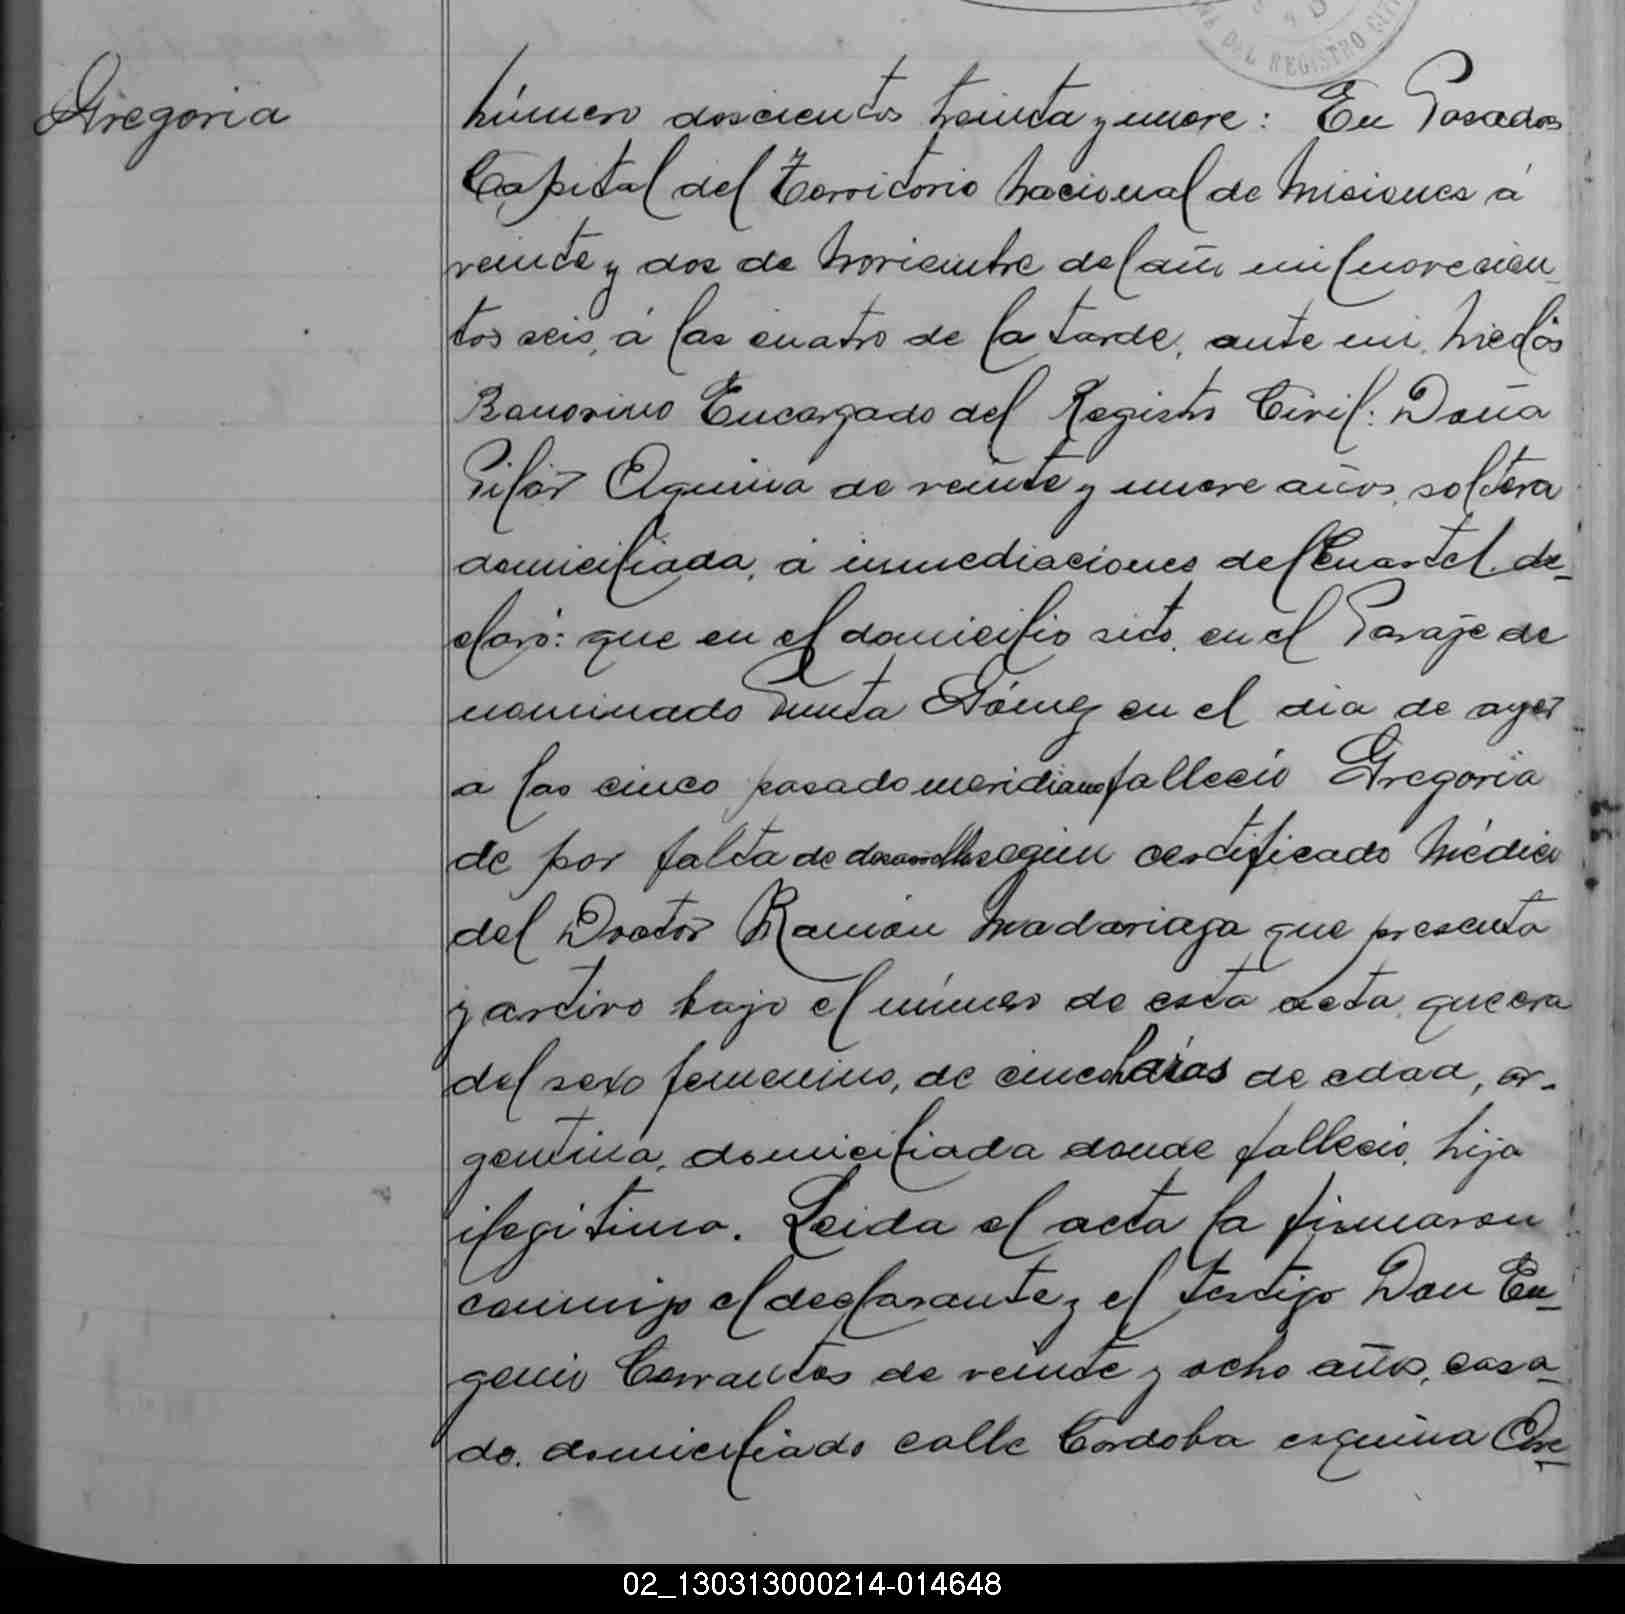 DEL REGISTRO CIVIL
Gregoria
Número doscientos treinta y nueve: En Posadas
Capital del Territorio Nacional de Misiones á
veinte y dos de Noviembre del año mil novecien-
tos seis, á las cuatro de la tarde, ante mi,
Encargado del Registro Civil: Doña
Pilar Aquina de veinte y nueve años, soltera
domiciliada, á inmediaciones del Cuartel, de-
claró: que en el domicilio sito, en el Paraje de
nominado Punta Gómez en el dia de ayer
a las cinco pasado meridiano falleció Gregoria
de por falta de desarrollo segun certificado Médico
del Doctor Ramón Madariaga que presenta
y archivo bajo el número de esta acta, que era
del sexo femenino, de cinco dias de edad, ar-
gentina, domiciliada donde falleció, hija
ilegitima. Leida el acta la firmaron
conmigo el declarante y el testigo Don Eu-
genio Cervantes de veinte y ocho años, casa-
do, domiciliado calle Cordoba esquina
02_130313000214-014648